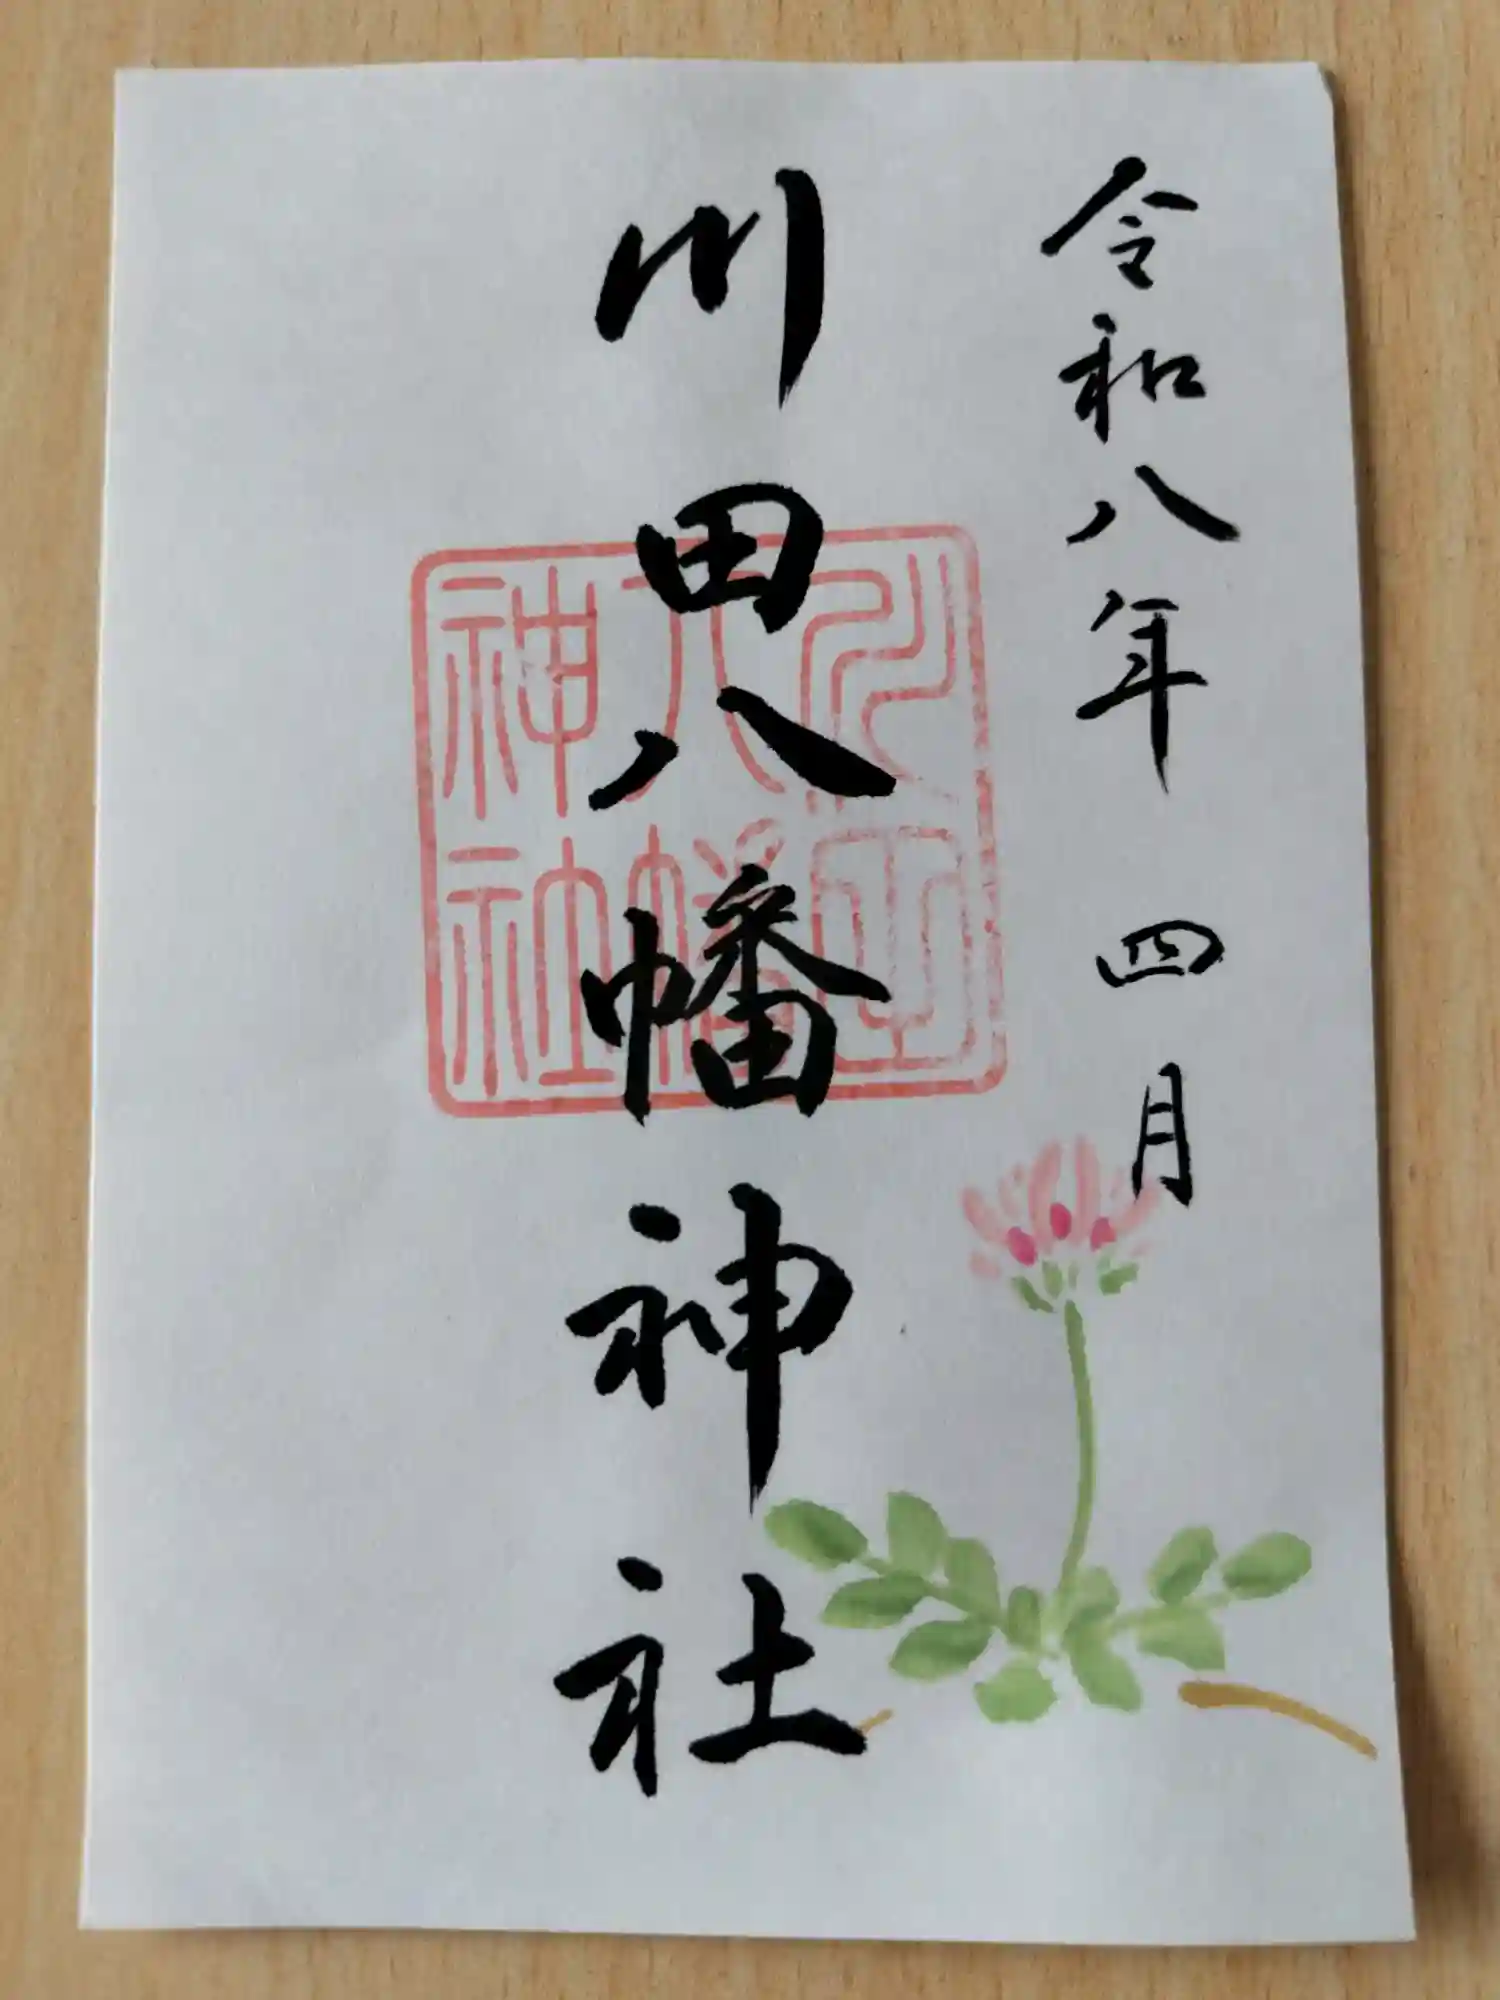 令和八年 四月
川田八幡神社
八幡
神社